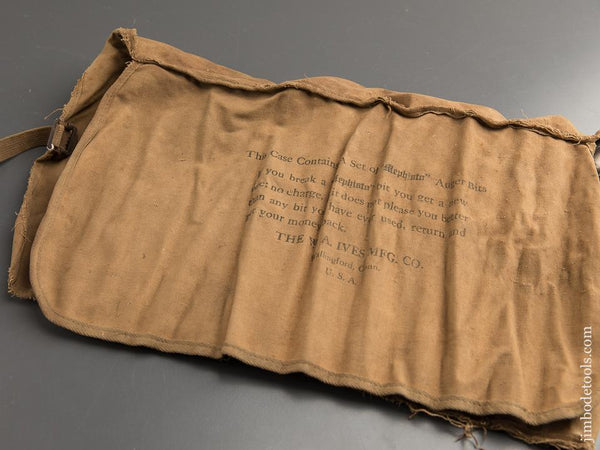 This Case Contains A Set of "Mephisto" Auger Bits
you break a "Mephisto" bit you get a new
no charge, it does not please you better
than any bit you have ever used, return and
get your money back.
THE W. A. IVES MFG. CO.
Wallingford, Conn.
U. S. A.
jimbodetools.com